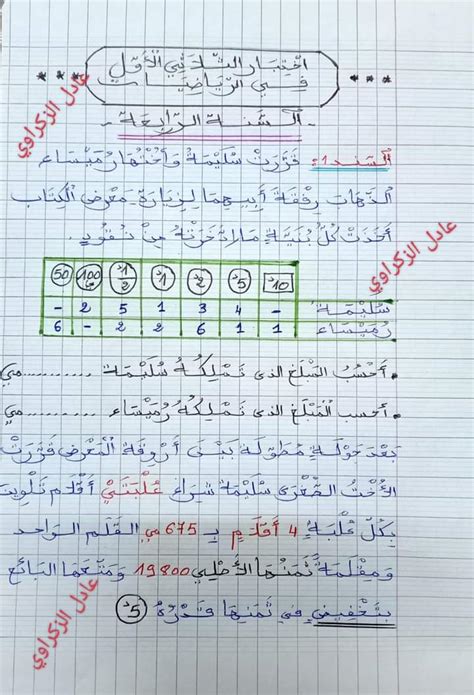 اختبار الثلاثي الأوّل
في الرّياضيّات
*** ***
- السّنة الرّابعة -
السند 1: قرّرت سليمة وأختها رميساء
الذّهاب رفقة أبيهما لزيارة معرض الكتاب
أخذت كلّ بنيّة ما ادّخرته من نقود.
50 100 1/2د 1د 2د 5د 10د
سليمة - 2 5 1 3 4 -
رميساء 6 - 2 2 6 1 1
• أحسب المبلغ الذي تملكه سليمة .......... مي
• أحسب المبلغ الذي تملكه رميساء .......... مي
بعد جولة مطوّلة بين أروقة المعرض قرّرت
الأخت الصّغرى سليمة شراء علبتي أقلام تلوين
بكلّ علبة 4 أقلام بـ 675 مي القلم الواحد
ومقلمة ثمنها الأصلي 19800 ومتّعها البائع
بتخفيض في ثمنها قدره 5د
عادل الزكراوي
عادل الزكراوي
عادل الزكراوي